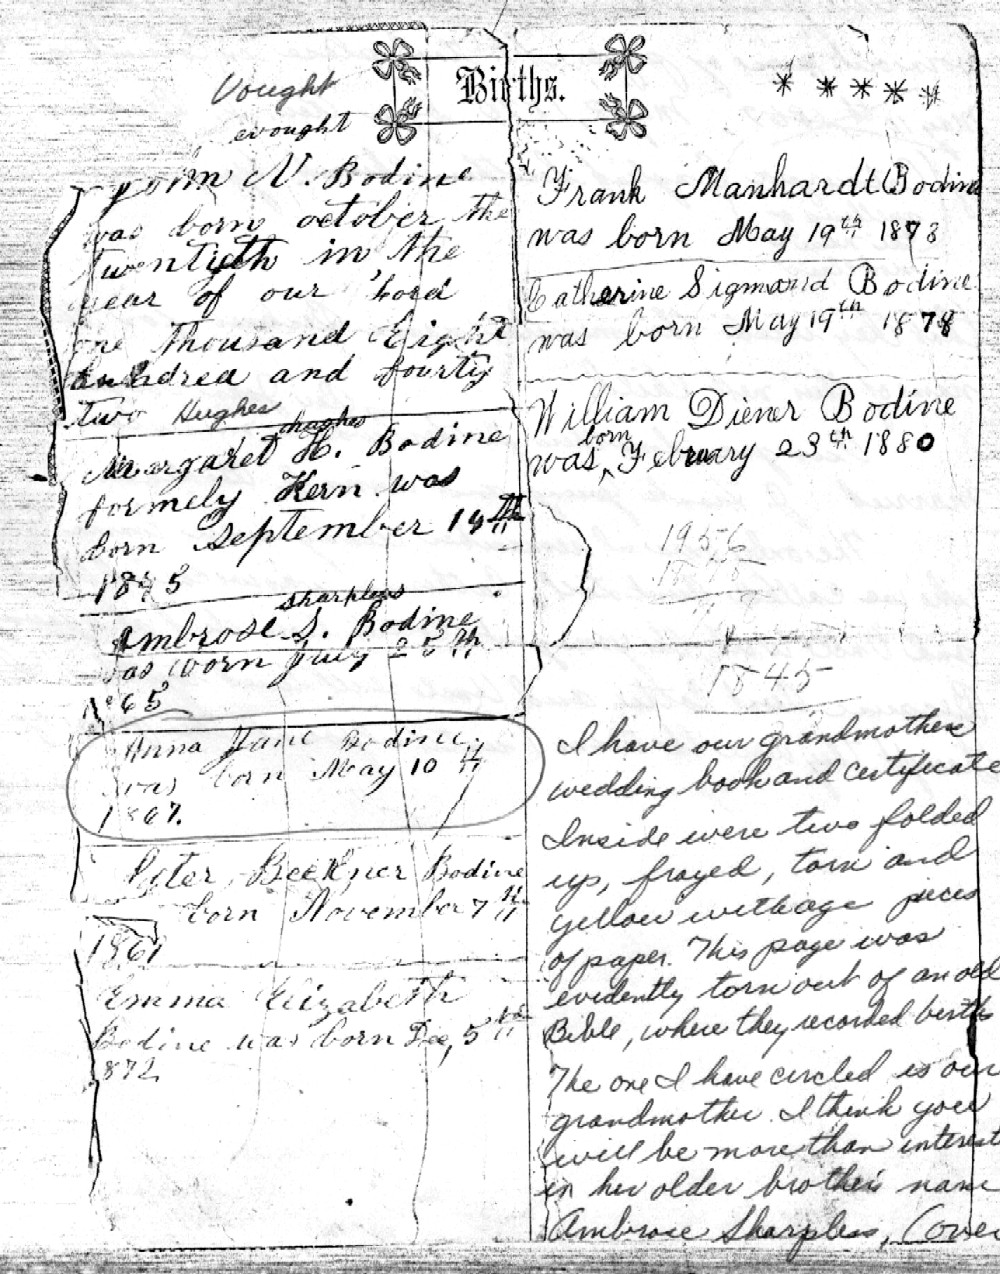 Births.
Vought
evought
John V. Bodine
was born october the
twentyth in the
year of our lord
one thousand Eight
hundred and fourty
two
Hughes
hughes
Margaret H. Bodine
formely Kern was
born September 14th
1845
sharpless
Ambrose S. Bodine
was born July 25th
1865
Anna Jane Bodine
was born May 10th
1867.
Peter Beekner Bodine
born November 7th
Emma Elizabeth
Bodine was born Dec, 5th
1872
* * * * *
Frank Manhardt Bodine
was born May 19th 1873
Catherine Sigmond Bodine
was born May 19th 1878
William Diener Bodine
born
was ^ February 23th 1880
1956
1845
I have our grandmothers
wedding book and certificate
Inside were two folded
up, frayed, torn and
yellow with age pieces
of paper. This page was
evidently torn out of an old
Bible, where they recorded births
The one I have circled is our
grandmother. I think you
will be more than interest
in her older brother's name
Ambrose Sharpless, (over